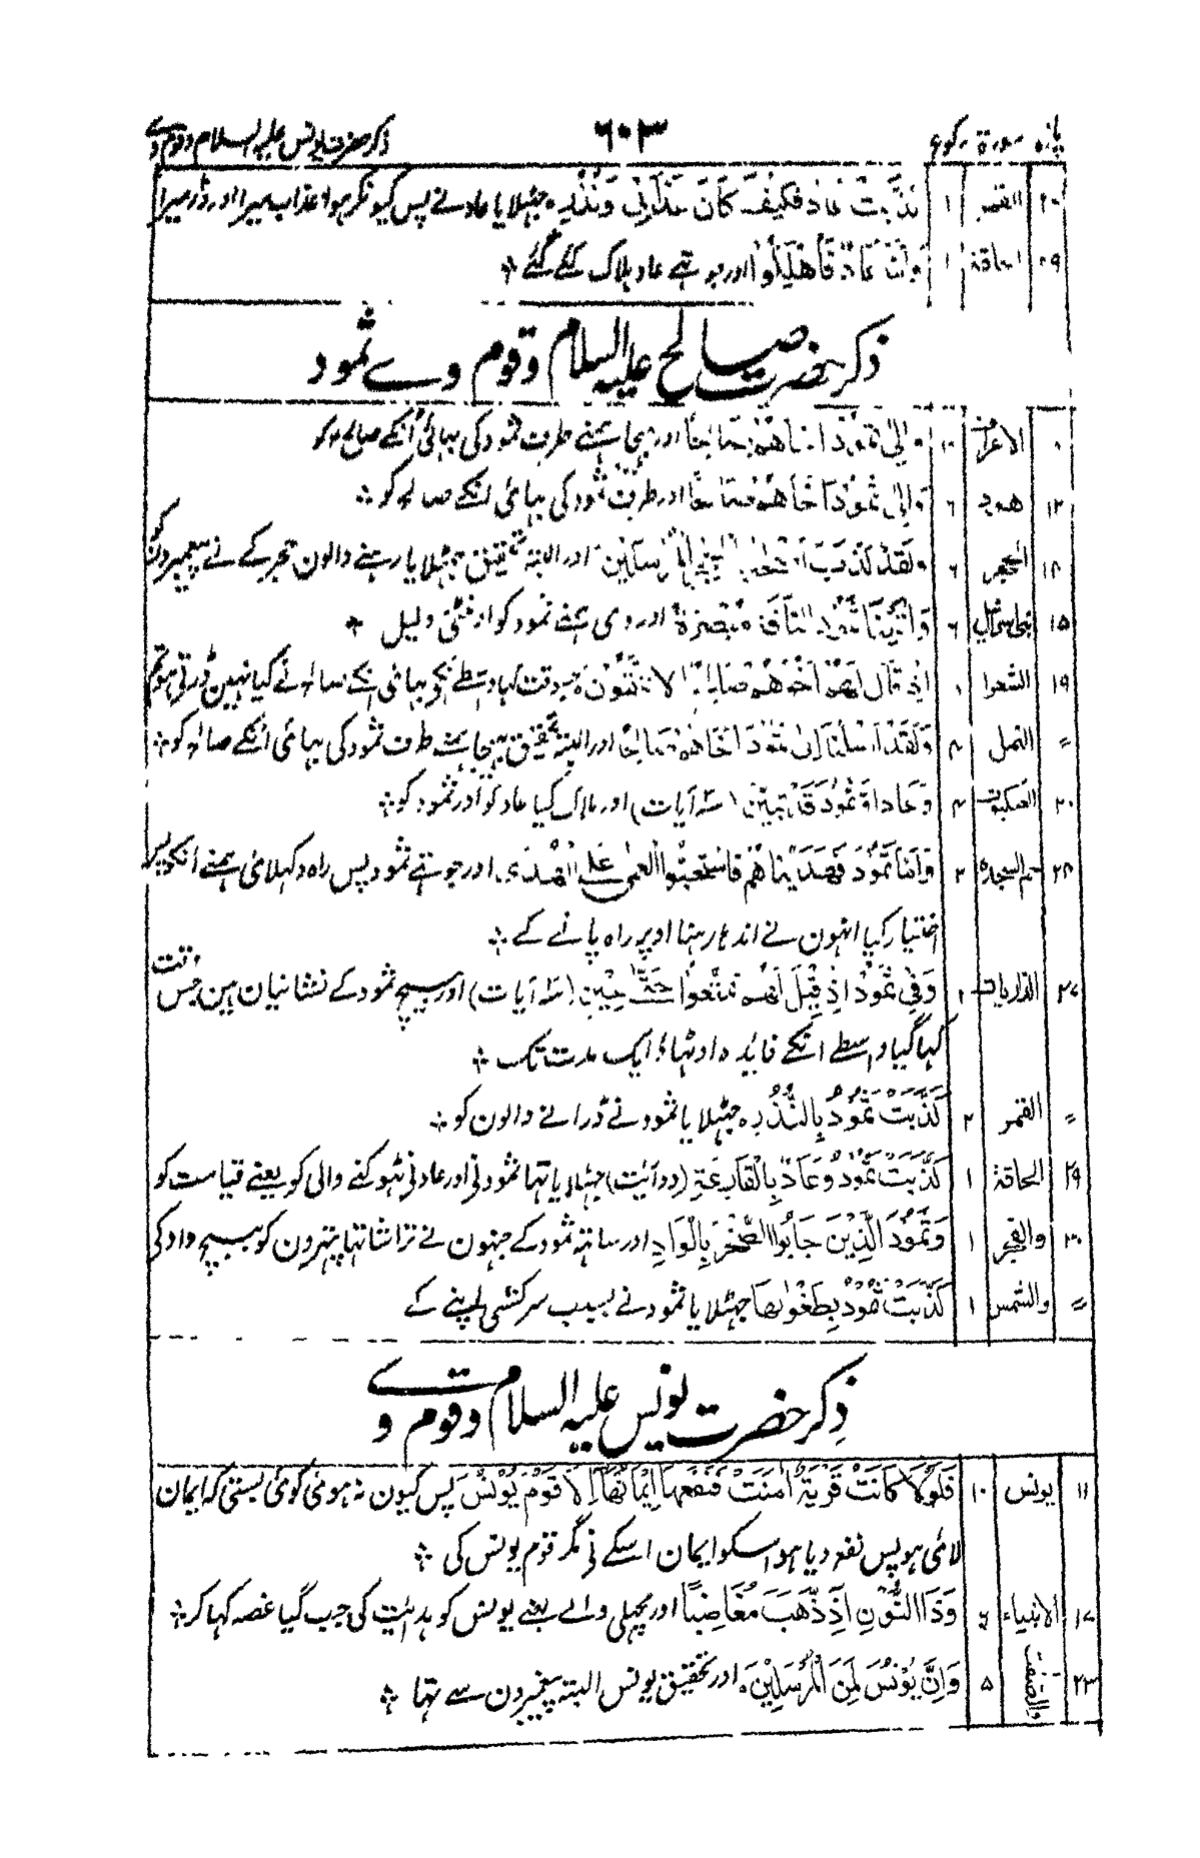 پارہ سورۃ رکوع ٦٠٣ ذکر حضرت یونس علیہ السلام وقوم وے
القمر ١ كَذَّبَتْ عَادٌ فَكَيْفَ كَانَ عَذَابِي وَنُذُرِ جھٹلایا عاد نے پس کیونکر ہوا عذاب میرا اور ڈر میرا
٢٩ الحاقۃ ١ وَأَمَّا عَادٌ فَأُهْلِكُوا اور جو تھے عاد ہلاک کئے گئے
ذکر حضرت صالح علیہ السلام وقوم وے ثمود
الاعراف ١٠ وَإِلَى ثَمُودَ أَخَاهُمْ صَالِحًا اور بھیجا ہمنے طرف ثمود کی بھائی اُنکے صالح کو
١٢ ھود ٦ وَإِلَى ثَمُودَ أَخَاهُمْ صَالِحًا اور طرف ثمود کی بھائی انکے صالح کو
١٤ الحجر ٦ وَلَقَدْ كَذَّبَ أَصْحَابُ الْمُرْسَلِينَ اور البتہ تحقیق جھٹلایا رہنے والون حجر کے نے پیغمبرونکو
١٥ بنی اسرائیل ٦ وَآتَيْنَا ثَمُودَ النَّاقَةَ مُبْصِرَةً اور دی ہمنے ثمود کو اونٹنی دلیل
١٩ الشعرا إِذْ قَالَ لَهُمْ أَخُوهُمْ صَالِحٌ أَلَا تَتَّقُونَ جسوقت کہا واسطے انکے بھائی انکے صالح نے کیا نہین ڈرتی ہو تم
= النمل ٤ وَلَقَدْ أَرْسَلْنَا إِلَى ثَمُودَ أَخَاهُمْ صَالِحًا اور البتہ تحقیق بھیجا ہمنے طرف ثمود کی بھائی اُنکے صالح کو
٢٠ العنکبوت ٤ وَعَادًا وَثَمُودَ قَدْ تَبَيَّنَ اور ہلاک کیا عاد کو اور ثمود کو
٢٤ حم السجدہ ٢ وَأَمَّا ثَمُودُ فَهَدَيْنَاهُمْ فَاسْتَحَبُّوا الْعَمَى عَلَى الْهُدَى اور جو تھے ثمود پس راہ دکھلائی ہمنے انکو پس
اختیار کیا انہون نے اندھا رہنا اوپر راہ پانے کے
٢٧ الذاریات ٢ وَفِي ثَمُودَ إِذْ قِيلَ لَهُمْ تَمَتَّعُوا حَتَّى حِينٍ اور بیچ ثمود کے نشانیان ہین جس وقت
کہا گیا واسطے انکے فائدہ اوٹھاؤ ایک مدت تک
= القمر ٢ كَذَّبَتْ ثَمُودُ بِالنُّذُرِ جھٹلایا ثمود نے ڈرانے والون کو
٢٩ الحاقۃ ١ كَذَّبَتْ ثَمُودُ وَعَادٌ بِالْقَارِعَةِ (دو آیت) جھٹلایا تھا ثمود نی اور عاد نی ٹھوکنے والی کو یعنے قیامت کو
٣٠ والفجر ١ وَثَمُودَ الَّذِينَ جَابُوا الصَّخْرَ بِالْوَادِ اور ساتھ ثمود کے جنہون نے تراشا تھا پتھرون کو بیچ واد کی
= والشمس ١ كَذَّبَتْ ثَمُودُ بِطَغْوَاهَا جھٹلایا ثمود نے بسبب سرکشی اپنے کے
ذکر حضرت یونس علیہ السلام وقوم وے
١١ یونس ١٠ فَلَوْلَا كَانَتْ قَرْيَةٌ آمَنَتْ فَنَفَعَهَا إِيمَانُهَا إِلَّا قَوْمَ يُونُسَ پس کیون نہ ہوئی کوئی بستی کہ ایمان
لائی ہو پس نفع دیا ہو اسکو ایمان اسکے نی مگر قوم یونس کی
١٧ الانبیاء ٦ وَذَا النُّونِ إِذْ ذَهَبَ مُغَاضِبًا اور مچھلی والے یعنے یونس کو ہدایت کی جب گیا غصہ کھا کر
٢٣ والصفت ٥ وَإِنَّ يُونُسَ لَمِنَ الْمُرْسَلِينَ اور تحقیق یونس البتہ پیغمبرون سے تھا